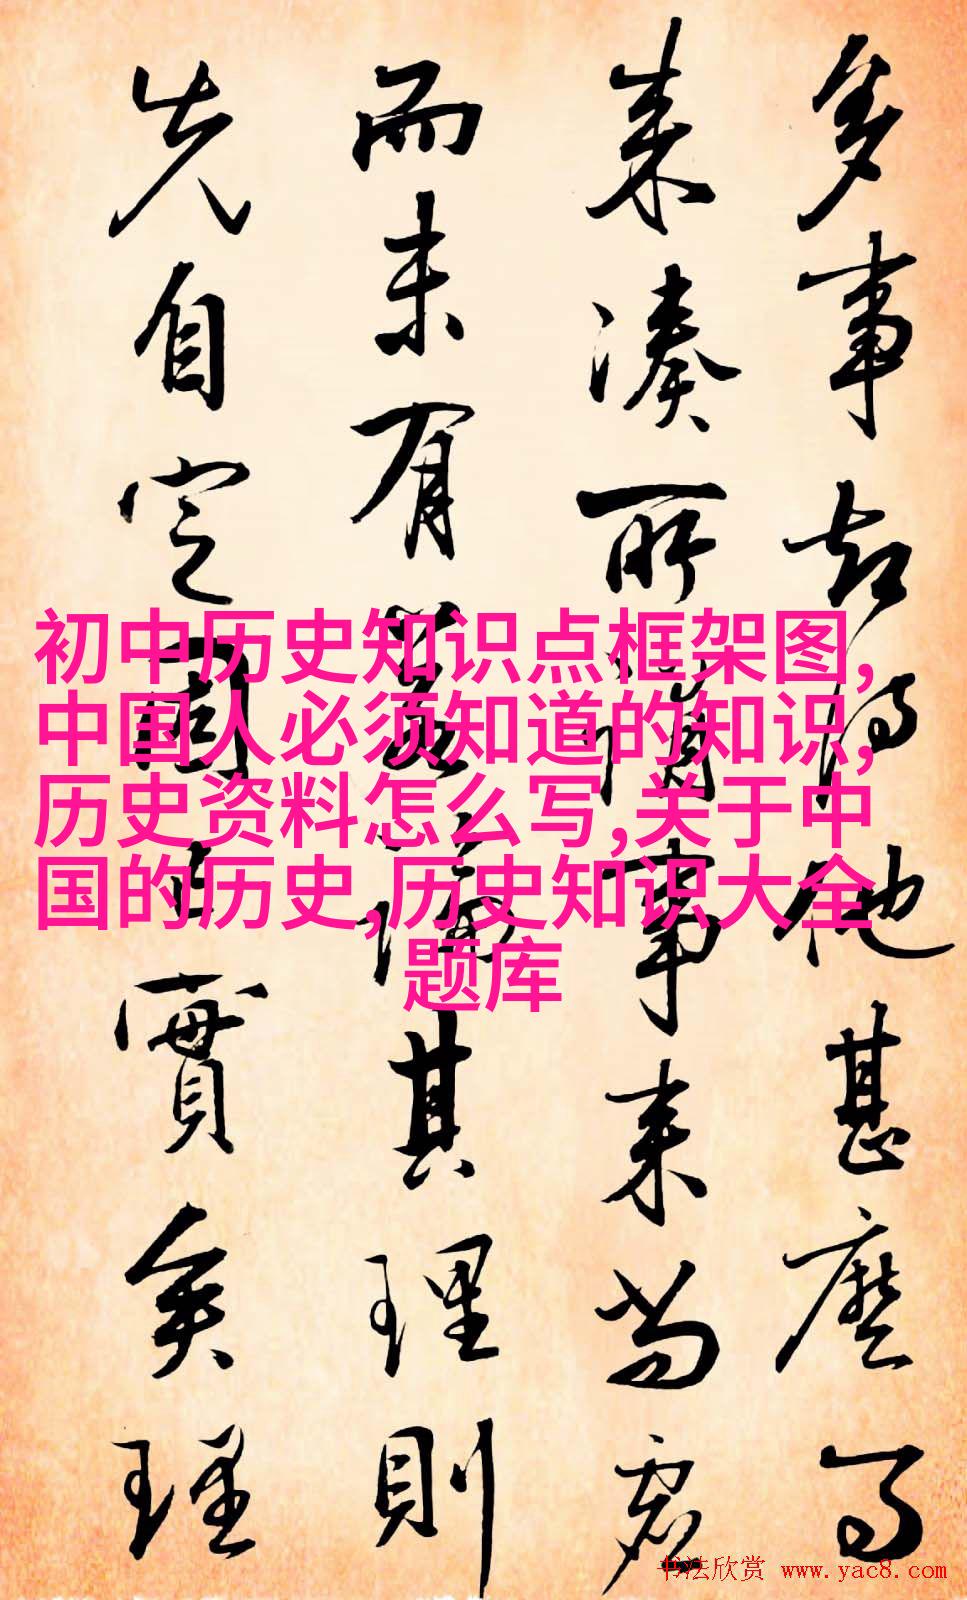 多事却待他甚麽了
来凑所谓事来当处
而未有益论其理则
先自定固已實矣理
初中历史知识点框架图,
中国人必须知道的知识,
历史资料怎么写,关于中
国的历史,历史知识大全
题库
书法欣赏 www.yac8.com